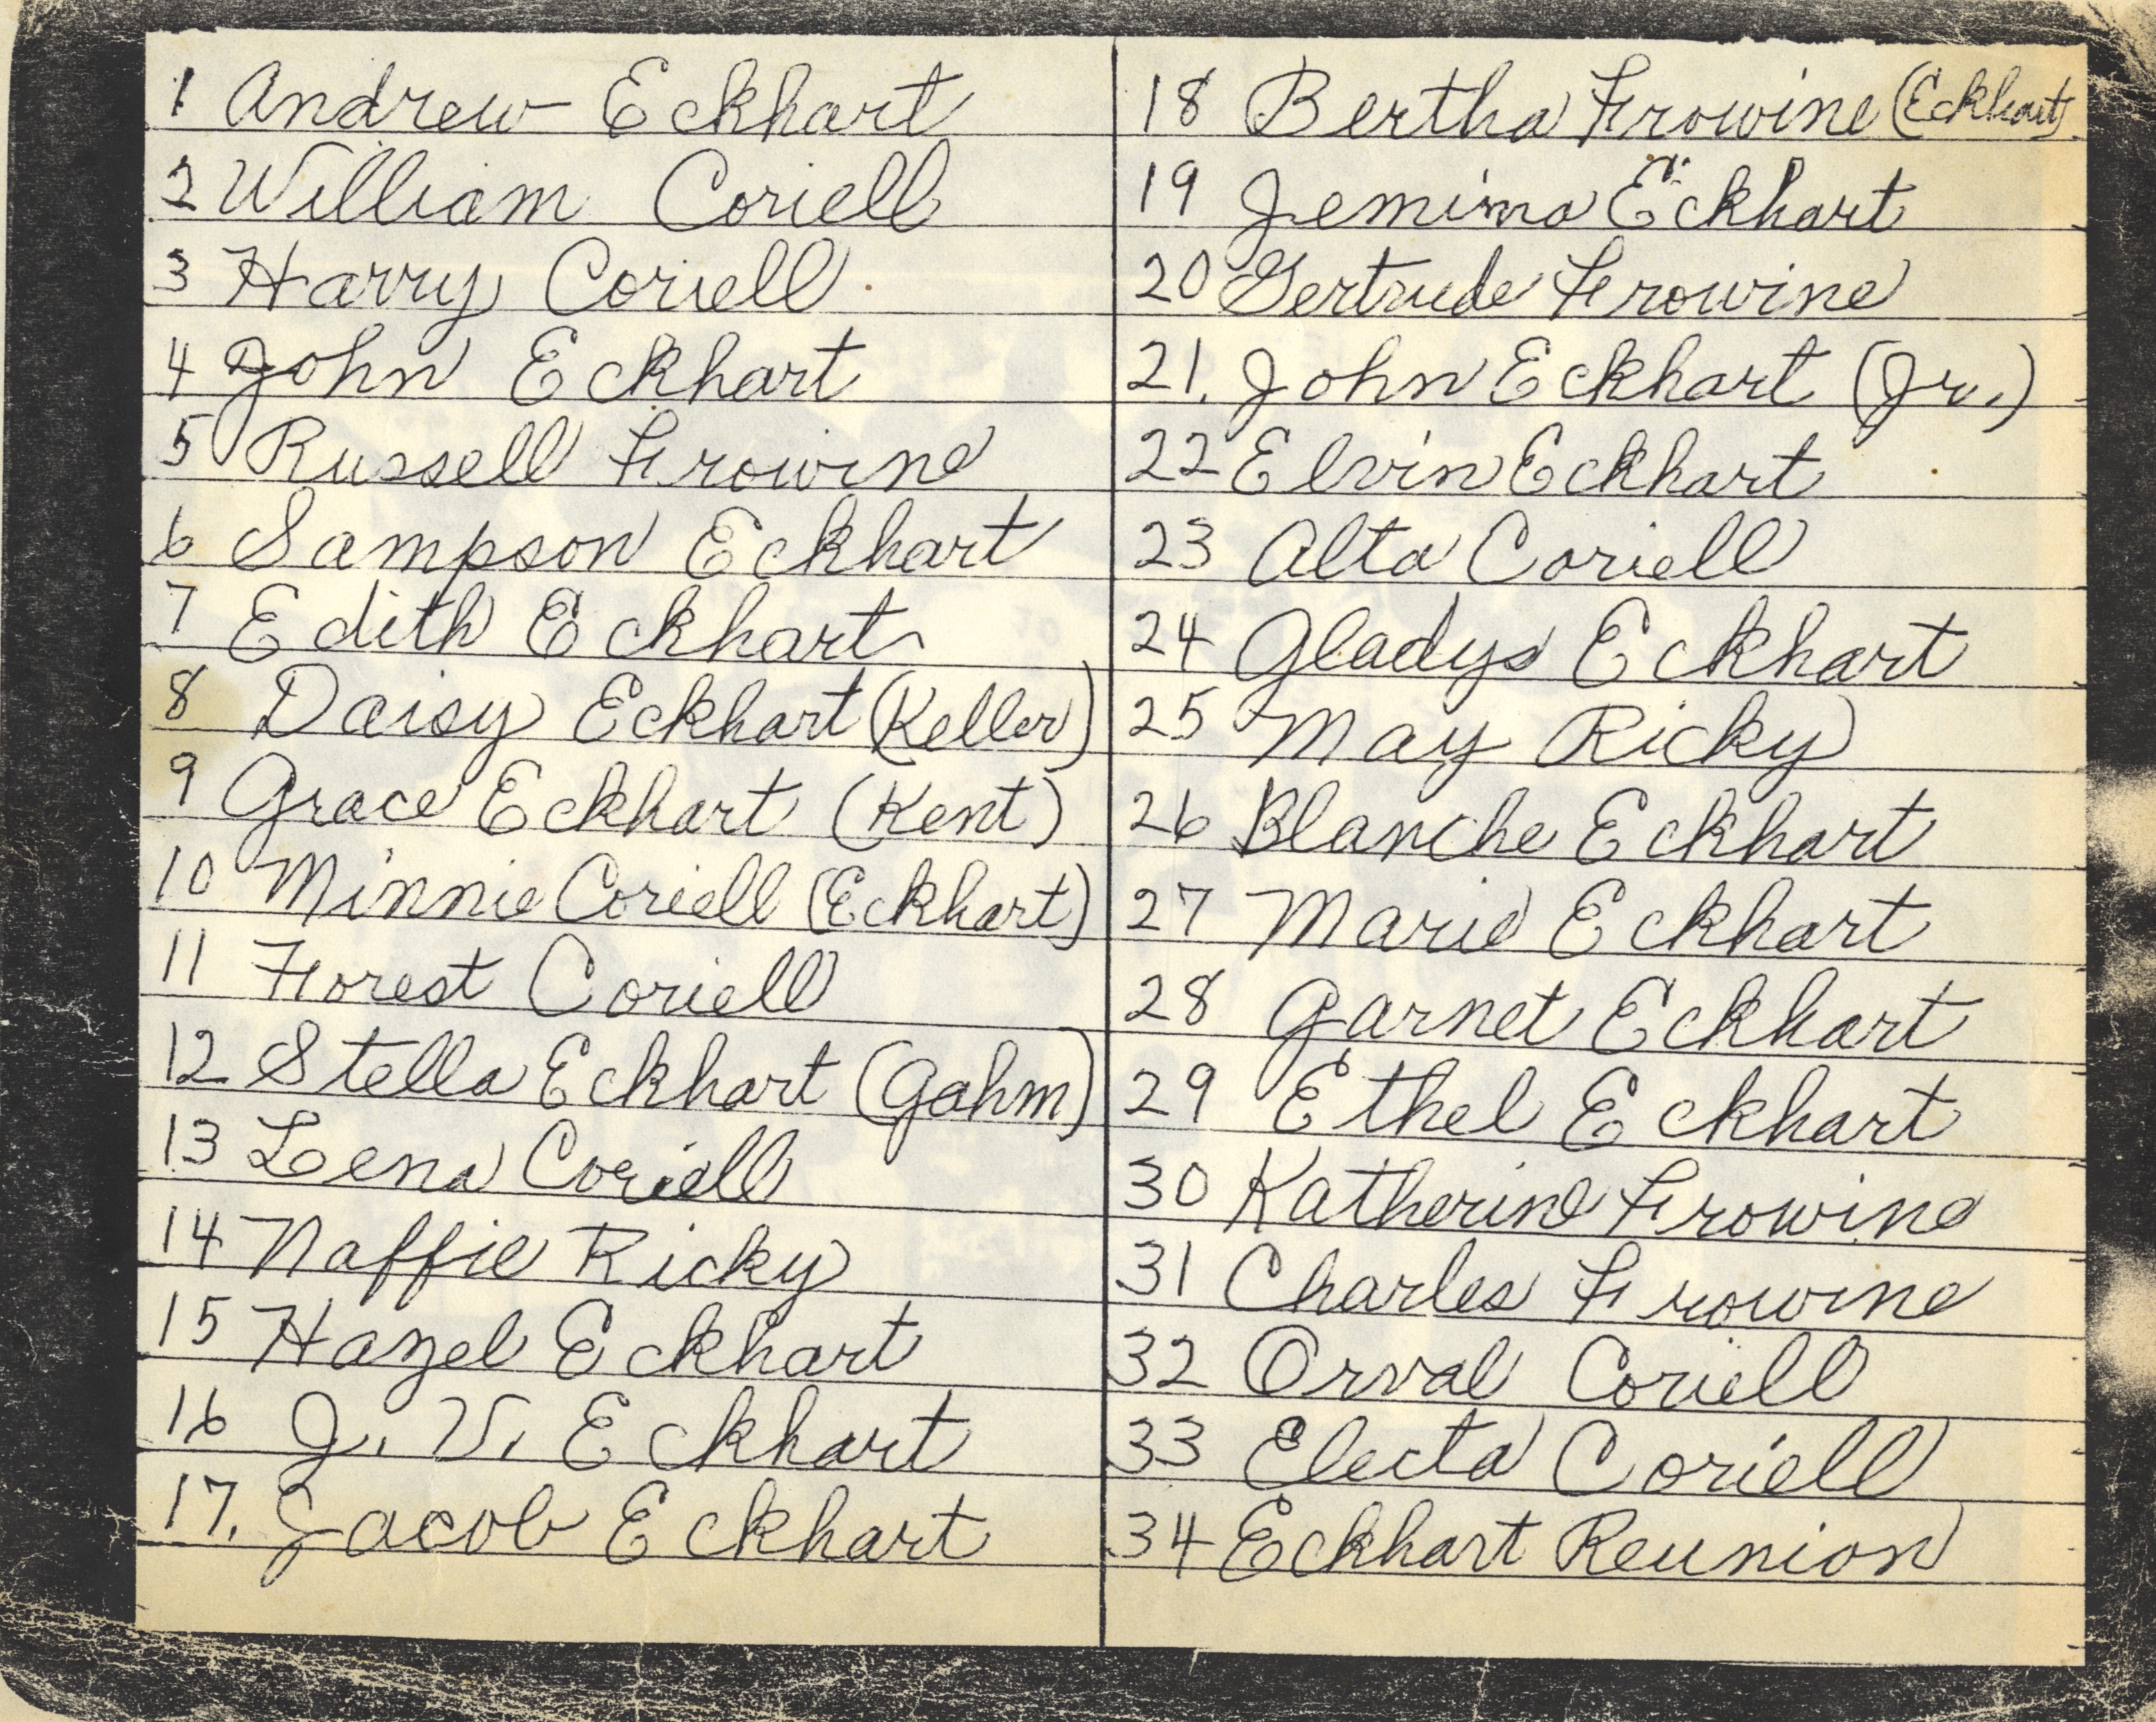 1 Andrew Eckhart
2 William Coriell
3 Harry Coriell
4 John Eckhart
5 Russell Frowine
6 Sampson Eckhart
7 Edith Eckhart
8 Daisy Eckhart (Keller)
9 Grace Eckhart (Kent)
10 Minnie Coriell (Eckhart)
11 Forest Coriell
12 Stella Eckhart (Gahm)
13 Lena Coriell
14 Naffie Ricky
15 Hazel Eckhart
16 J. V. Eckhart
17. Jacob Eckhart
18 Bertha Frowine (Eckhart)
19 Jemima Eckhart
20 Gertrude Frowine
21. John Eckhart (Jr.)
22 Elvin Eckhart
23 Alta Coriell
24 Gladys Eckhart
25 May Ricky
26 Blanche Eckhart
27 Marie Eckhart
28 Garnet Eckhart
29 Ethel Eckhart
30 Katherine Frowine
31 Charles Frowine
32 Orval Coriell
33 Electa Coriell
34 Eckhart Reunion